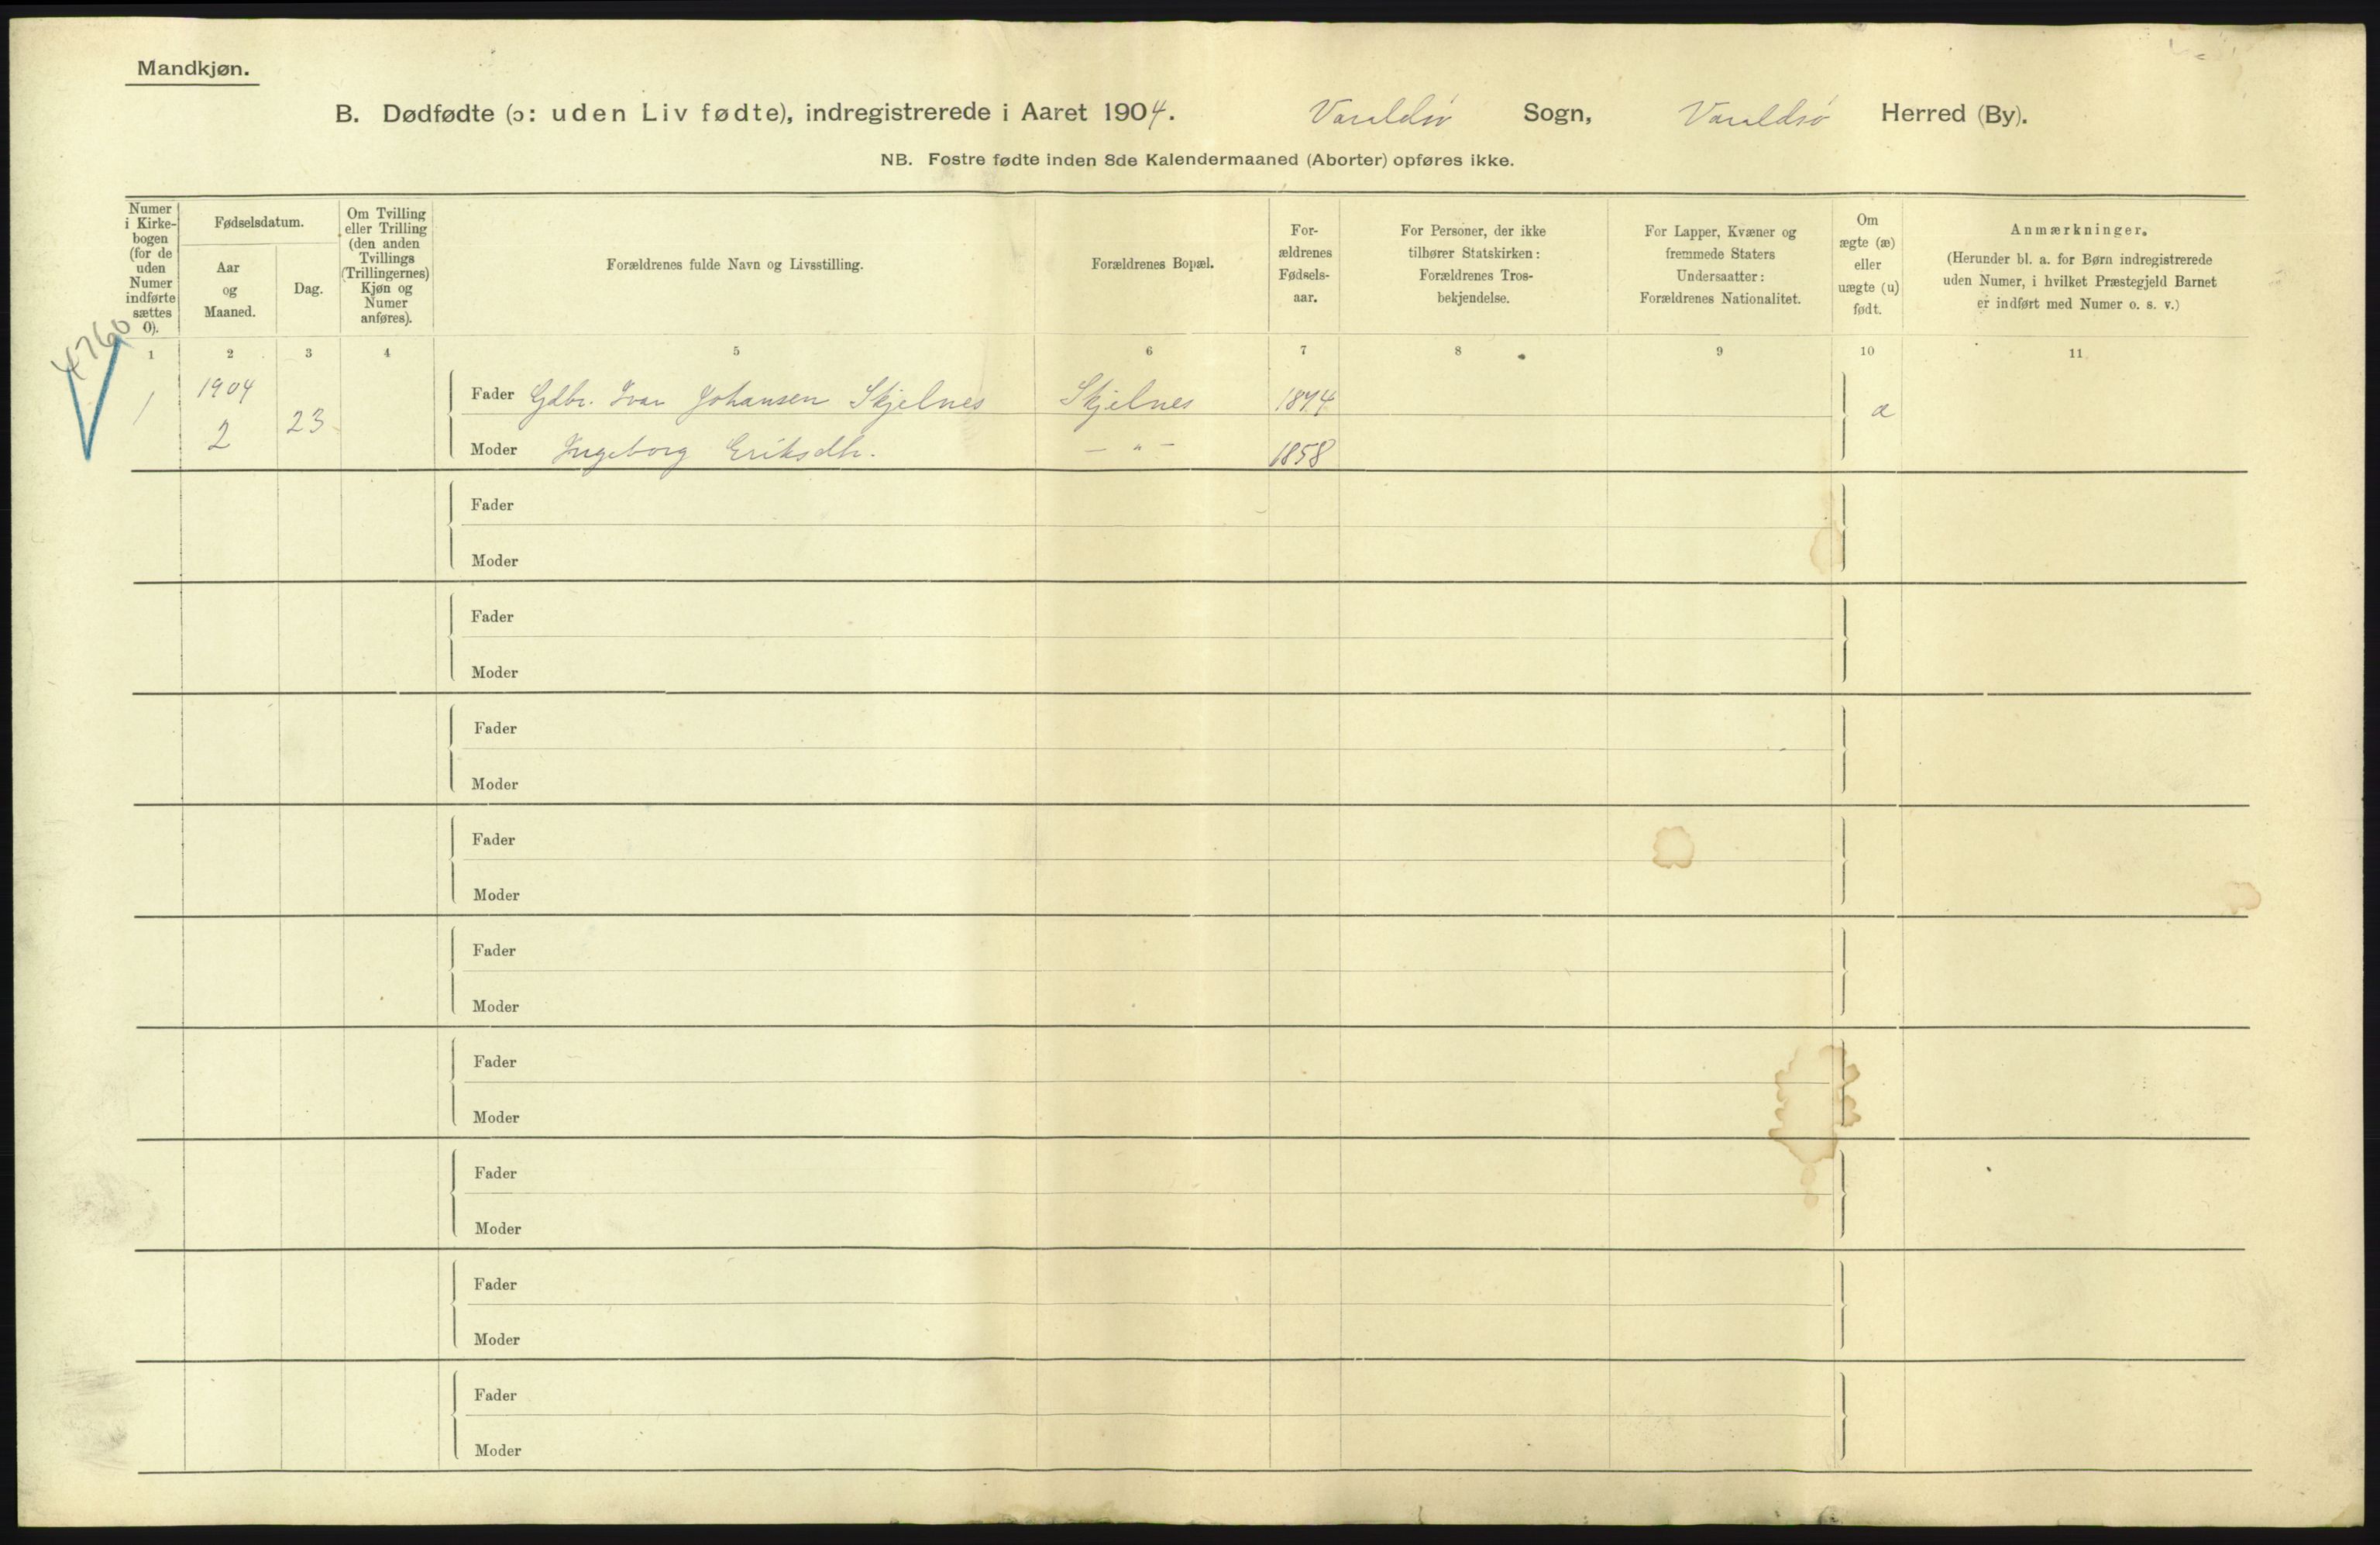 Mandkjøn.
B. Dødfødte (ɔ: uden Liv fødte), indregistrerede i Aaret 1904. Varaldsø Sogn, Varaldsø Herred (By).
NB. Fostre fødte inden 8de Kalendermaaned (Aborter) opføres ikke.
Numer
i Kirke-
bogen
(for de
uden
Numer
indførte
sættes
0).
Fødselsdatum.
Aar
og
Maaned.
Dag.
Om Tvilling
eller Trilling
(den anden
Tvillings
(Trillingernes)
Kjøn og
Numer
anføres).
Forældrenes fulde Navn og Livsstilling.
Forældrenes Bopæl.
For-
ældrenes
Fødsels-
aar.
For Personer, der ikke
tilhører Statskirken:
Forældrenes Tros-
bekjendelse.
For Lapper, Kvæner og
fremmede Staters
Undersaatter:
Forældrenes Nationalitet.
Om
ægte (æ)
eller
uægte (u)
født.
Anmærkninger.
(Herunder bl. a. for Børn indregistrerede
uden Numer, i hvilket Præstegjeld Barnet
er indført med Numer o. s. v.)
4760
1 2 3 4 5 6 7 8 9 10 11
1 1904 2 23
Fader Gdbr. Ivar Johansen Skjelnes Skjelnes 1874 æ
Moder Ingeborg Eriksdtr. — " — 1858
Fader
Moder
Fader
Moder
Fader
Moder
Fader
Moder
Fader
Moder
Fader
Moder
Fader
Moder
Fader
Moder
Fader
Moder